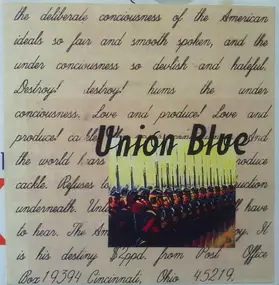 the deliberate conciousness of the American
ideals so fair and smooth spoken, and the
under conciousness so devlish and hateful.
Destroy! destroy! hums the under
conciousness. Love and produce! Love and
produce!
Union Blue
And
the world
produce
cackle. Refuses
underneath.
to hear. The
It
is his destiny $2ppd. from Post Office
Box 19394 Cincinnati, Ohio 45219.